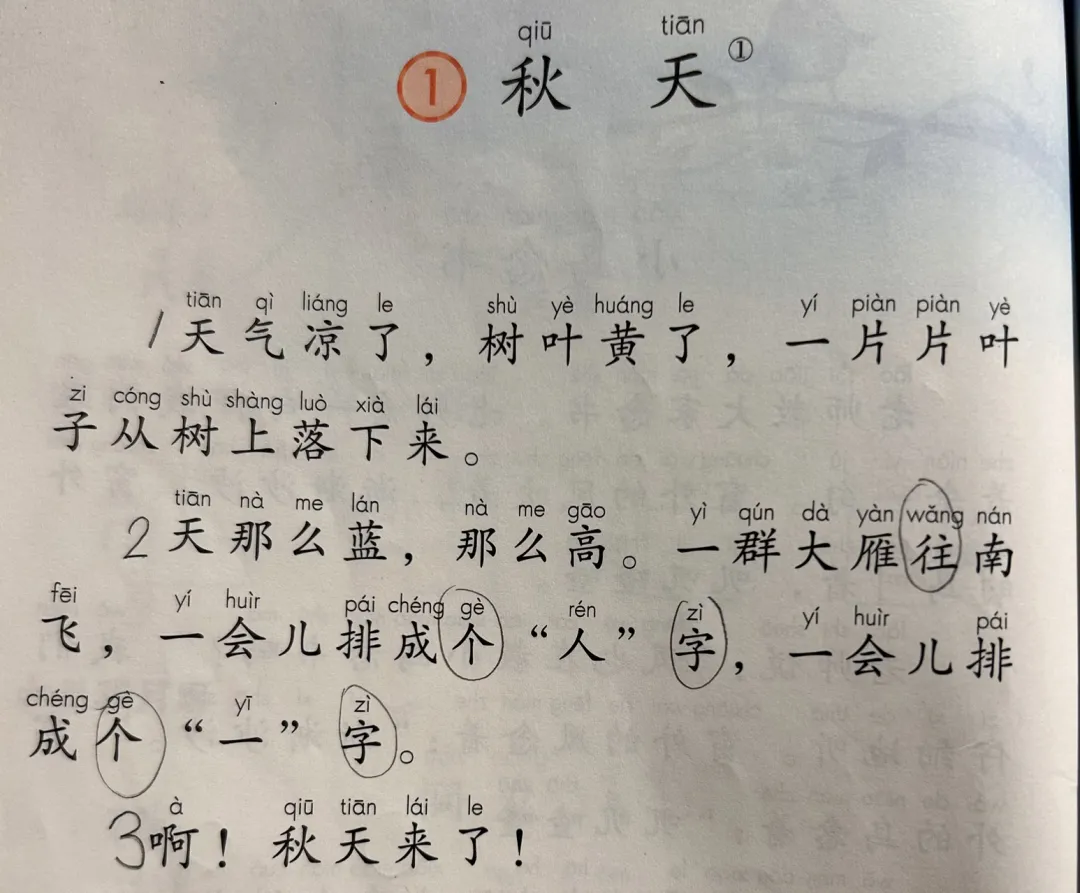 qiū tiān
① 秋 天 ①
tiān qì liáng le shù yè huáng le yí piàn piàn yè
1天气凉了，树叶黄了，一片片叶
zi cóng shù shàng luò xià lái
子从树上落下来。
tiān nà me lán nà me gāo yì qún dà yàn wǎng nán
2天那么蓝，那么高。一群大雁往南
fēi yí huìr pái chéng gè rén zì yí huìr pái
飞，一会儿排成个“人”字，一会儿排
chéng gè yī zì
成个“一”字。
à qiū tiān lái le
3啊！秋天来了！